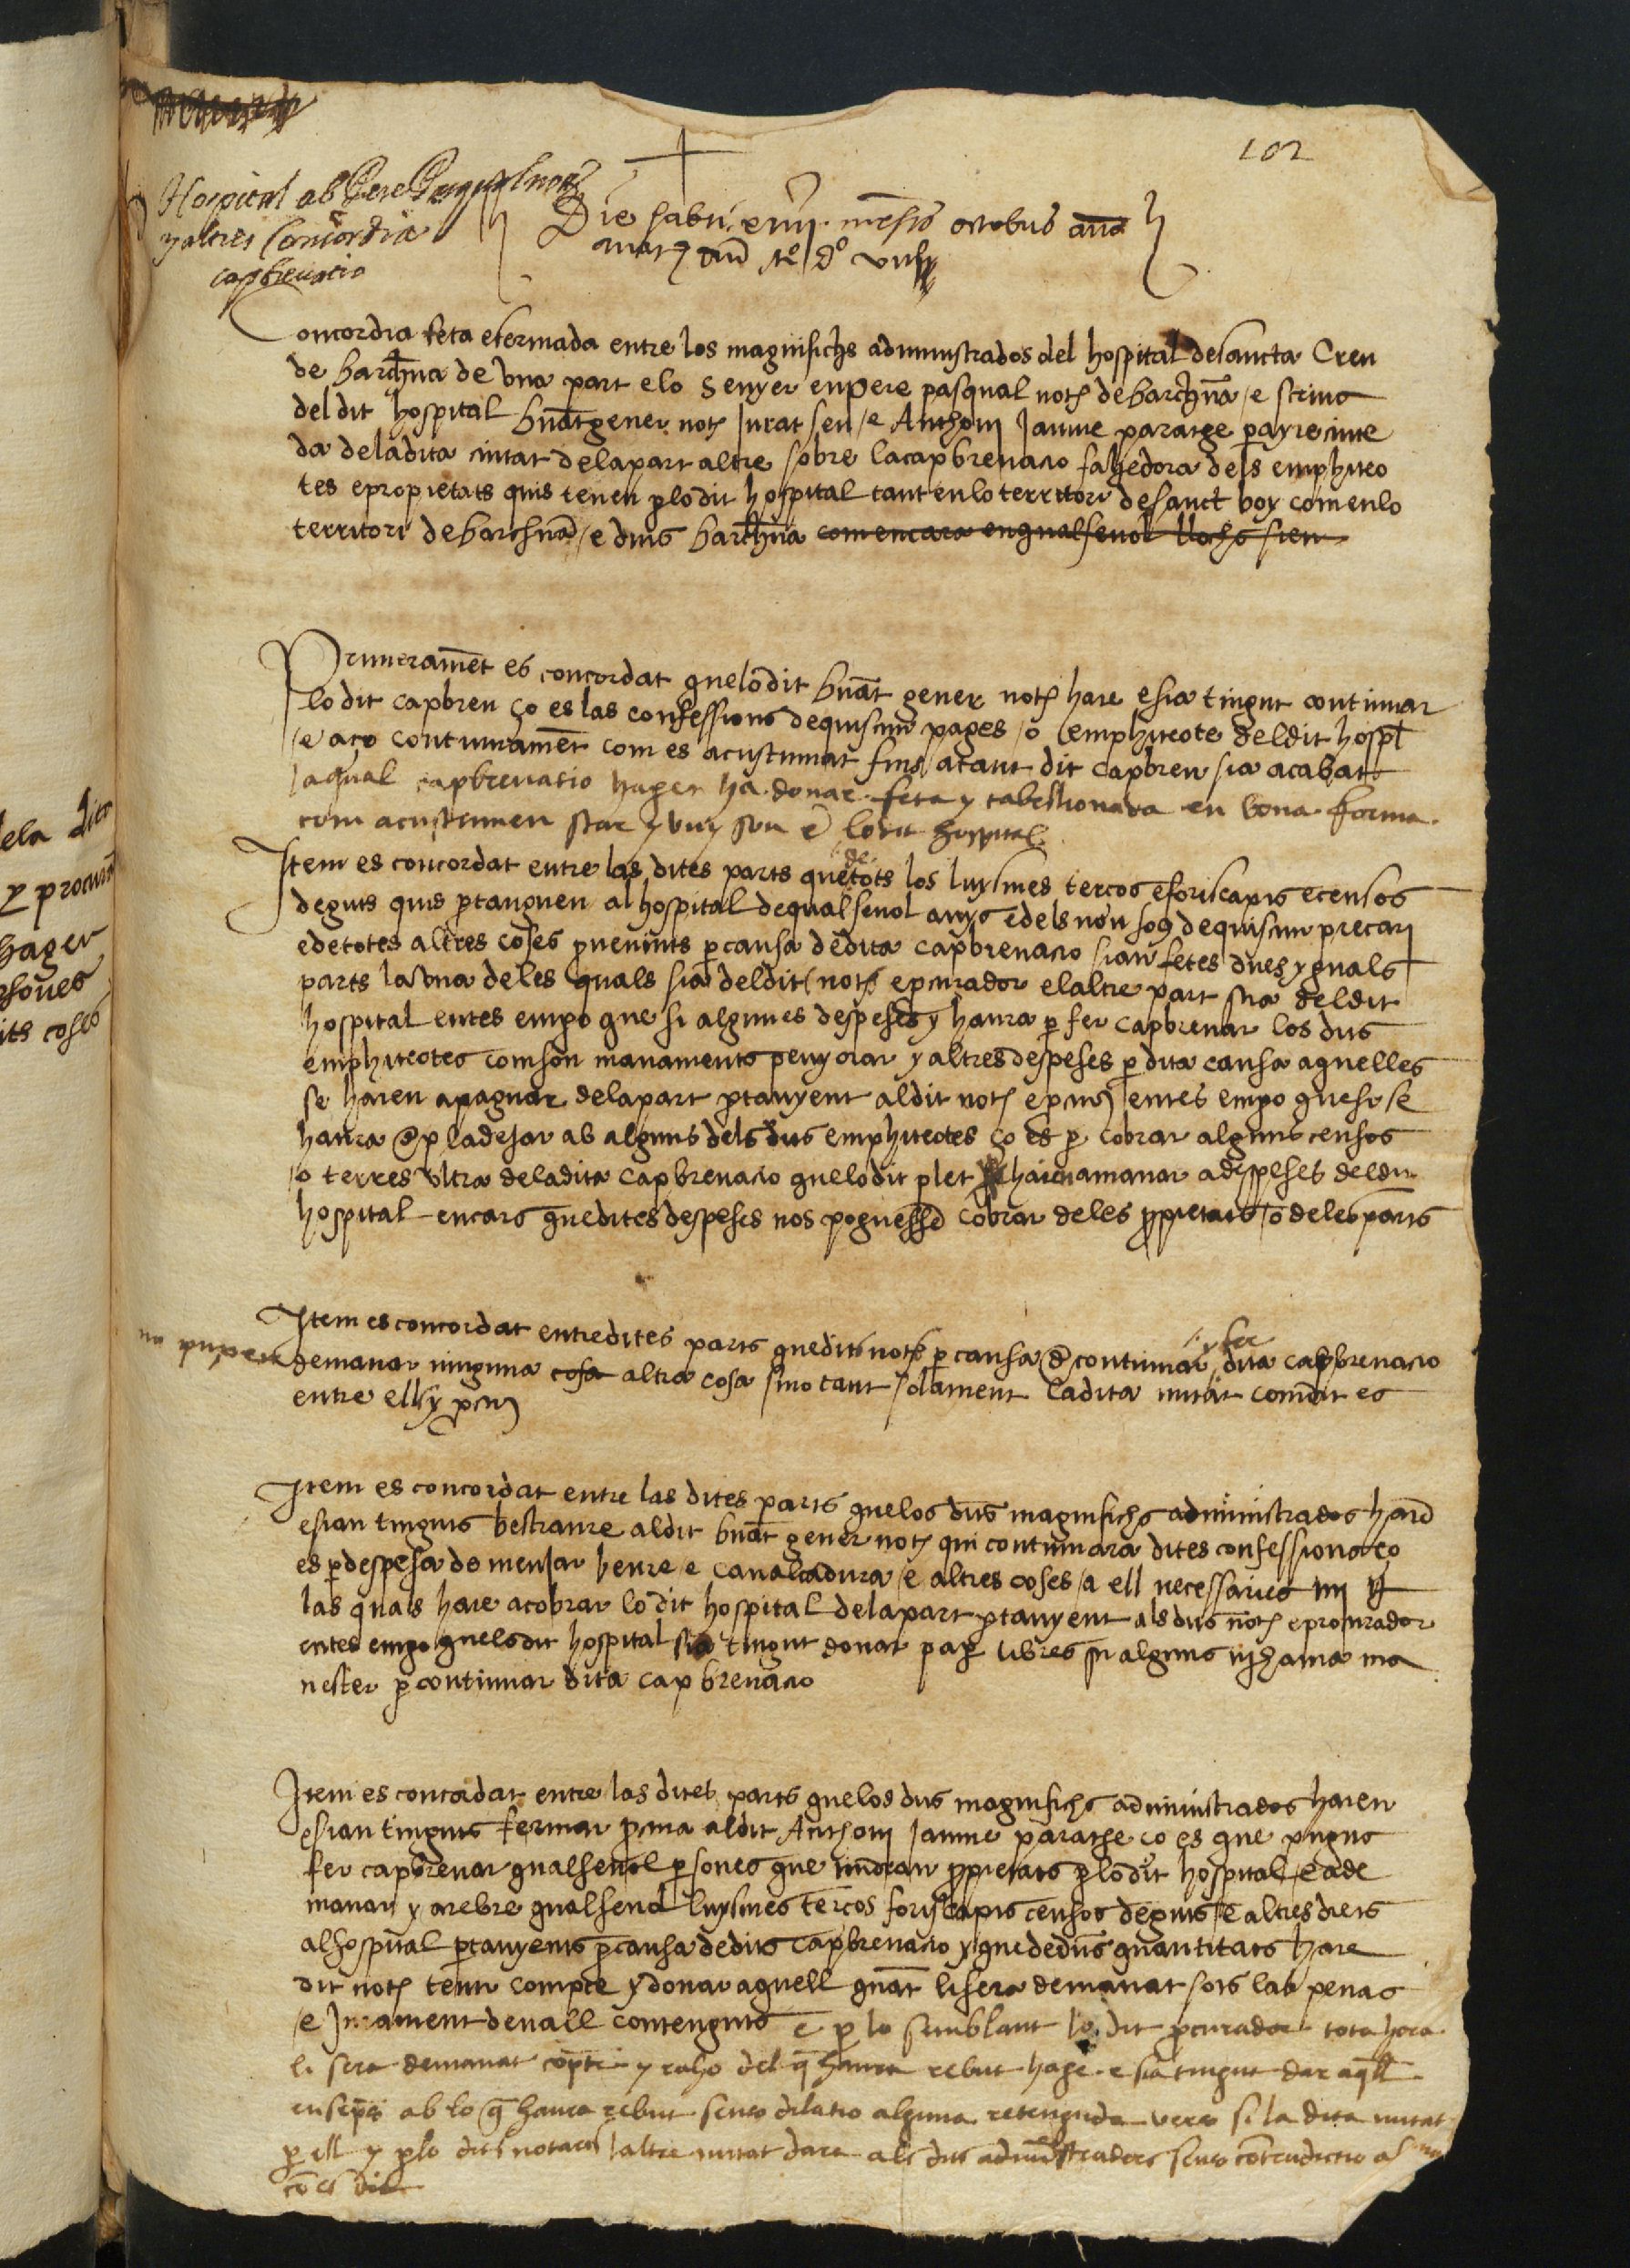 102
Hospital ab Pere Pasqual not
y altres Concordia
capbrevatio
Die sabti xviiij mensis octobris
Concordia feta e fermada entre los magnifichs administrados del hospital de sancta Creu
de barchna de una part e lo Senyer en pere pasqual not de barchna / e scriva
del dit hospital bnat gener not Jurat seu / e Anthoni Jaume paratge parayre ciute
da de la dita ciutat de la part altre sobre la capbrevacio fahedora dels emphiteo
tes e propietats quis tenen p lo dit hospital tant en lo territori de sanct boy com en lo
territori de barchna / e dins barchna com encara en qualsevol llochs sien
Primerament es concordat que lo dit bnat gener not hare e sia tingut continuar
lo dit capbreu ço es las confessions de quiscun pages / o emphiteote del dit hospl
/ e aço continuament com es acustumat fins a tant dit capbreu sia acabat
la qual capbrevatio hager ha donar feta y tabellionada en bona forma
com acustumen star y vuy son e lo dit hospital
Item es concordat entre las dites parts que de tots los luysmes terços e foriscapis e censos
deguts quis ptanguen al hospital de qualsevol anys e dels nou sos de quiscun precari
e de totes altres coses pvenints p causa de dita capbrevacio sian fetes dues yguals
parts la una de les quals sia del dit not e pcurador e laltre part sia del dit
hospital entes empo que si algunes despeses y haura p fer capbrevar los dits
emphiteotes com son manaments penyorar y altres despeses p dita causa aquelles
se haien a pagar de la part ptanyent al dit not e pcur entes empo que si se
haura a pladejar ab alguns dels dits emphiteotes ço es p cobrar alguns censos
/ o terres ultra de la dita capbrevacio que lo dit plet se haie a manar a despeses del dit
hospital encara que dites despeses nos poguessen cobrar de les ppietats / o de les parts
Item es concordat entre dites parts que dits not p causa de continuar y fer dita capbrevacio
no puxen demanar ninguna cosa altra cosa sino tant solament la dita mitat com dit es
entre ells y pcur
Item es concordat entre las dites parts que los dits magnifichs administrados haien
e sian tinguts bestraure al dit bnat gener not qui continuara dites confessions ço
es p despesa de menjar beure e cavalcadura / e altres coses / a ell necessaries iiii ll
las quals hare a cobrar lo dit hospital de la part ptanyent als dits not e procurador
entes empo que lo dit hospital sia tingut donar pap libres si alguns ni haura ma
nester p continuar dita capbrevacio
Item es concordat entre las dites parts que los dits magnifichs administrados haien
e sian tinguts fermar pcura al dit Anthoni Jaume paratge ço es que pugue
fer capbrevar qualsevol psones que tindran ppietats p lo dit hospital / e a de
manar y a rebre qualsevol luysmes terços foriscapis censos deguts / e altres drets
al hospital ptanyents p causa de dita capbrevacio y que de dites quantitats hare
dit not tenir compte y donar aquell quat li sera demanat sots las penas
/ e Jurament devall contenguts e p lo semblant lo dit pcurador tota hora
li sera demanat compte y raho del q haura rebut hage e sia tingut dar aqll
ensemps ab lo q haura rebut sens dilatio alguna retenguda vers si la dita mitat
p ell y p lo dit notari laltre mitat dara als dits administradors sens contradictio
co es dit